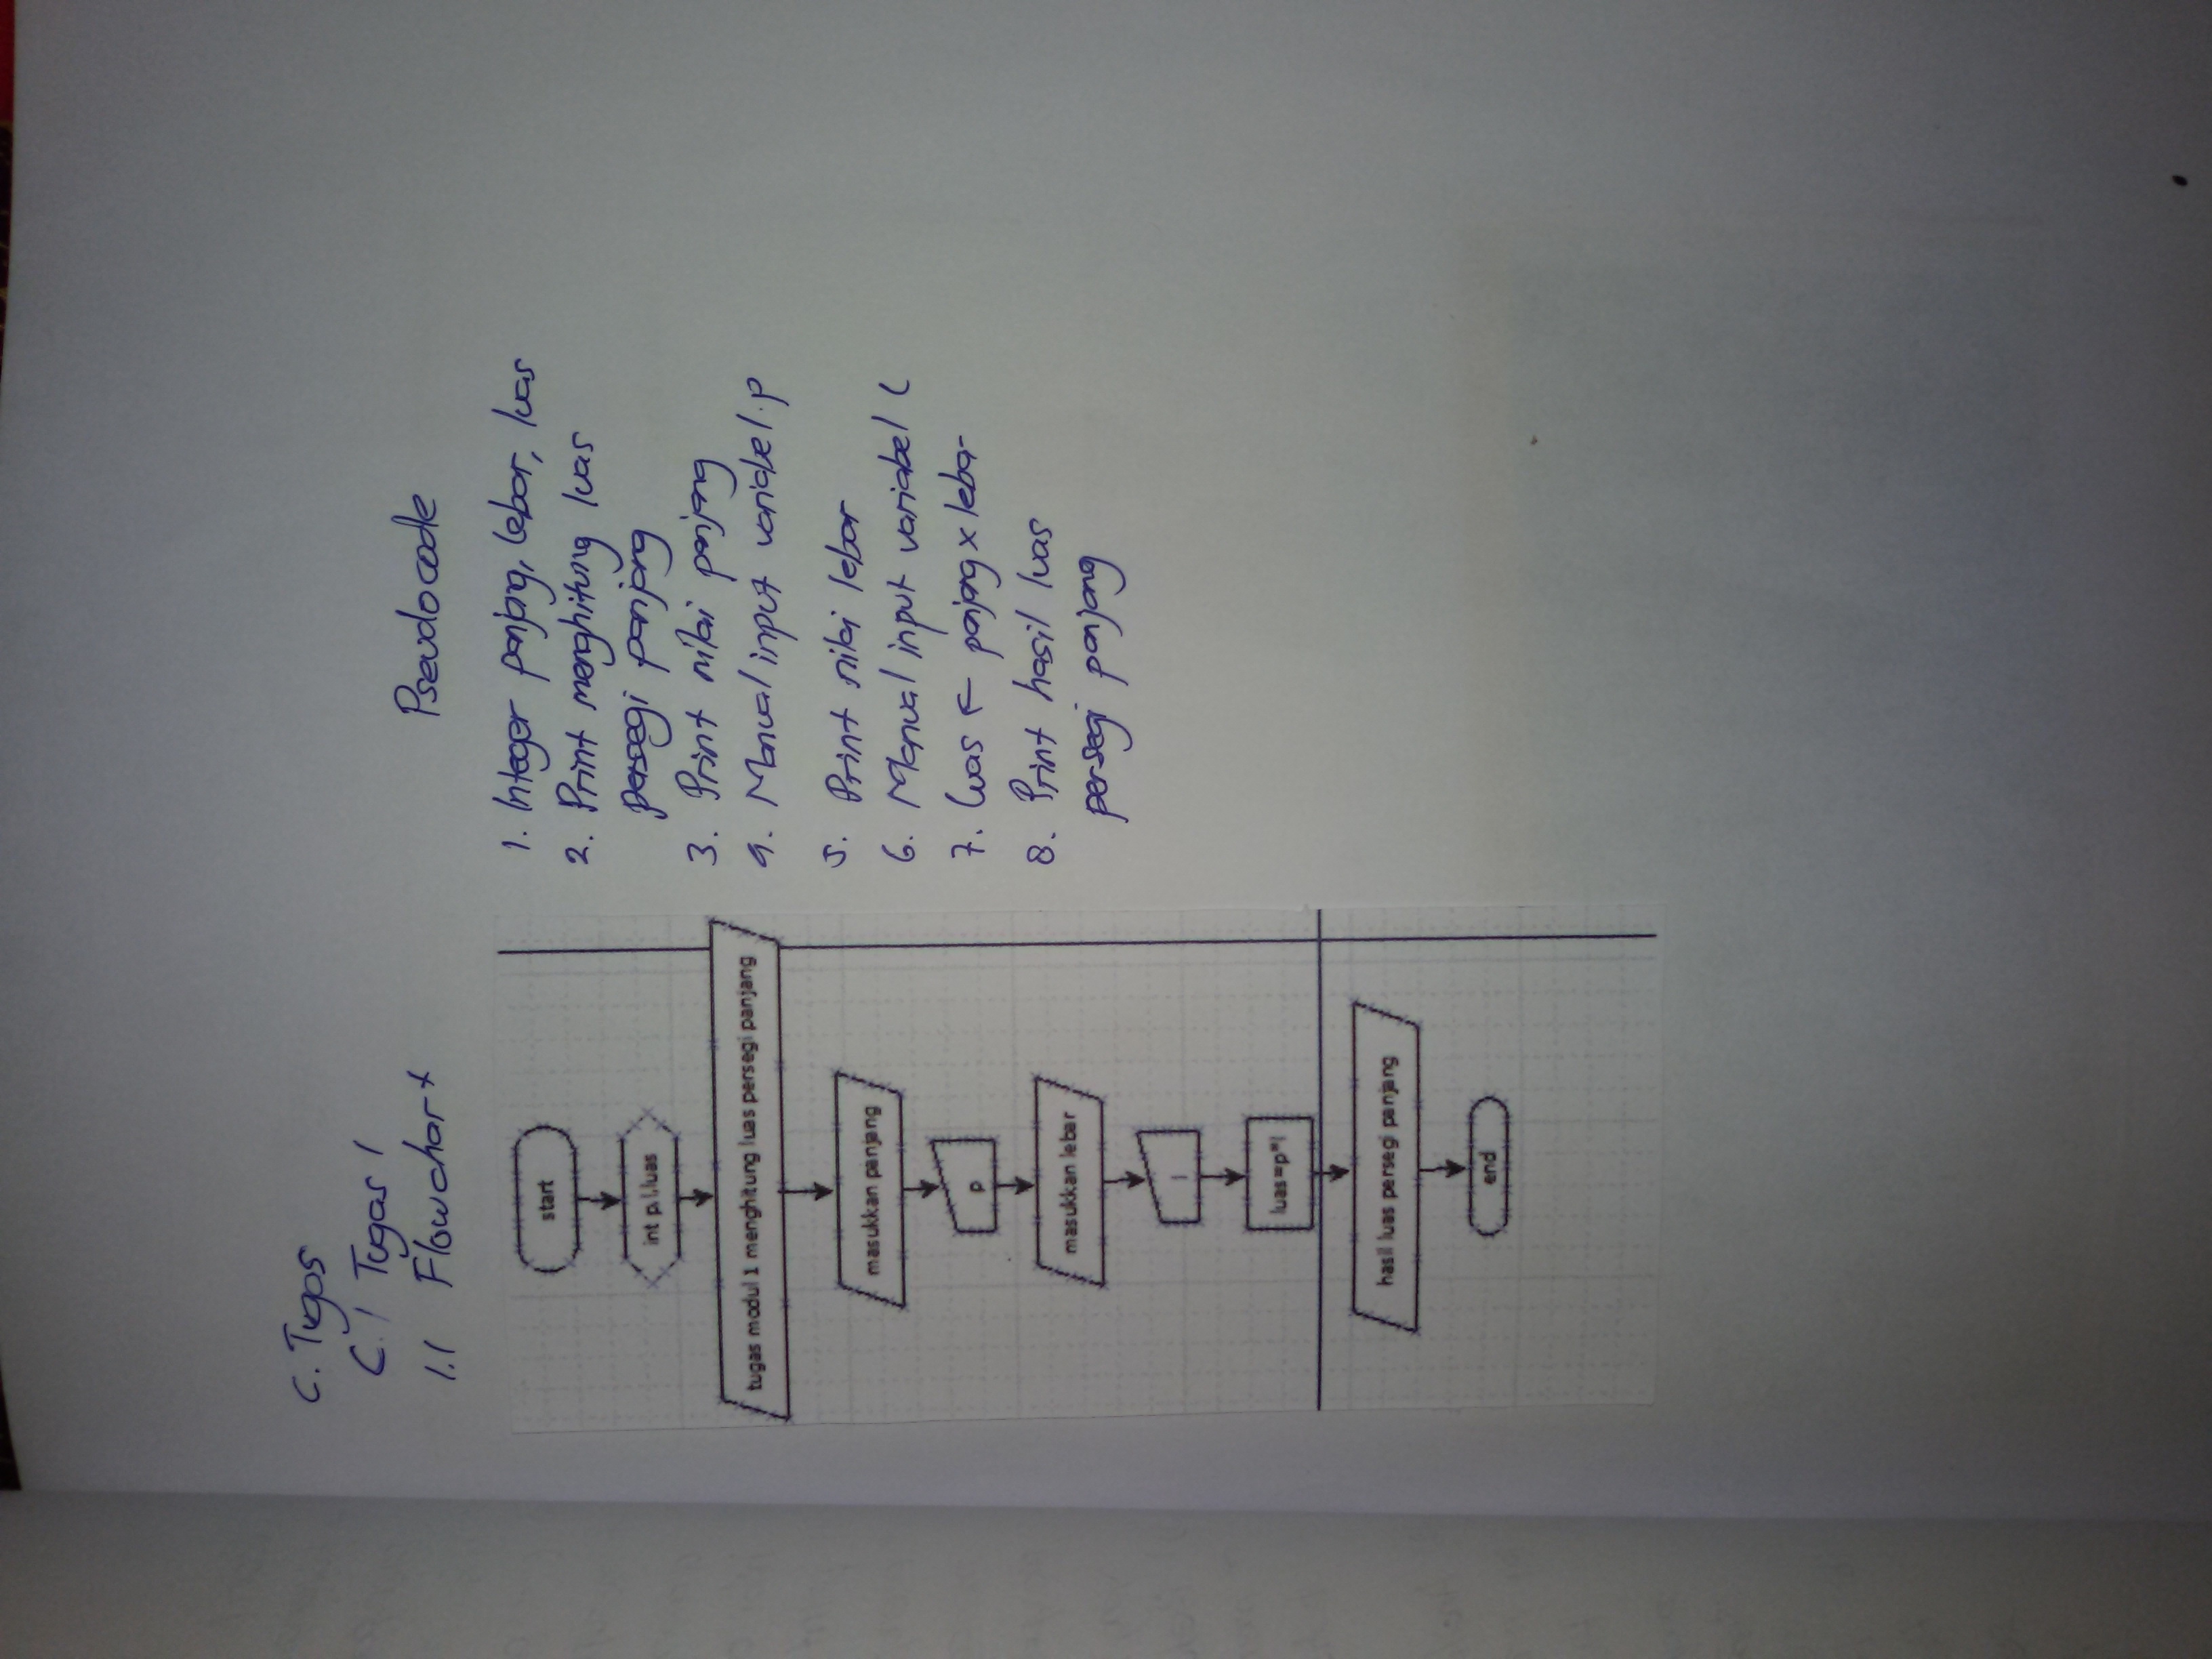 C. Tugas
C.1 Tugas 1
1.1 Flowchart
start
int p,l,luas
tugas modul 1 menghitung luas persegi panjang
masukkan panjang
p
masukkan lebar
l
luas=p*l
hasil luas persegi panjang
end
Pseudocode
1. Integer panjang, lebar, luas
2. Print menghitung luas
persegi panjang
3. Print nilai panjang
4. Manual input variabel p
5. Print nilai lebar
6. Manual input variabel l
7. luas ← panjang x lebar
8. Print hasil luas
persegi panjang